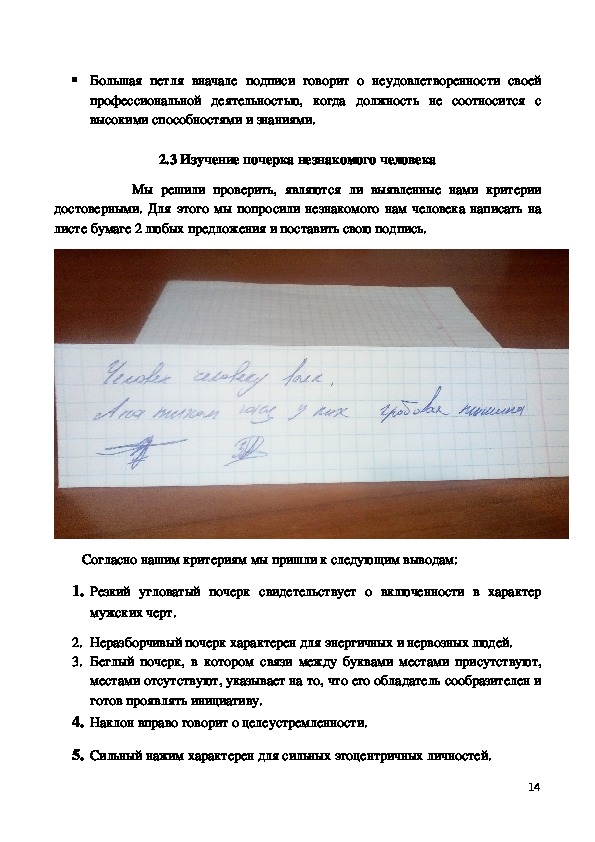 ▪ Большая петля вначале подписи говорит о неудовлетворенности своей
профессиональной деятельностью, когда должность не соотносится с
высокими способностями и знаниями.
2.3 Изучение почерка незнакомого человека
Мы решили проверить, являются ли выявленные нами критерии
достоверными. Для этого мы попросили незнакомого нам человека написать на
листе бумаге 2 любых предложения и поставить свою подпись.
Человек человеку волк,
А на тихом у них гробовая тишина
Согласно нашим критериям мы пришли к следующим выводам:
1. Резкий угловатый почерк свидетельствует о включенности в характер
мужских черт.
2. Неразборчивый почерк характерен для энергичных и нервозных людей.
3. Беглый почерк, в котором связи между буквами местами присутствуют,
местами отсутствуют, указывает на то, что его обладатель сообразителен и
готов проявлять инициативу.
4. Наклон вправо говорит о целеустремленности.
5. Сильный нажим характерен для сильных эгоцентричных личностей.
14